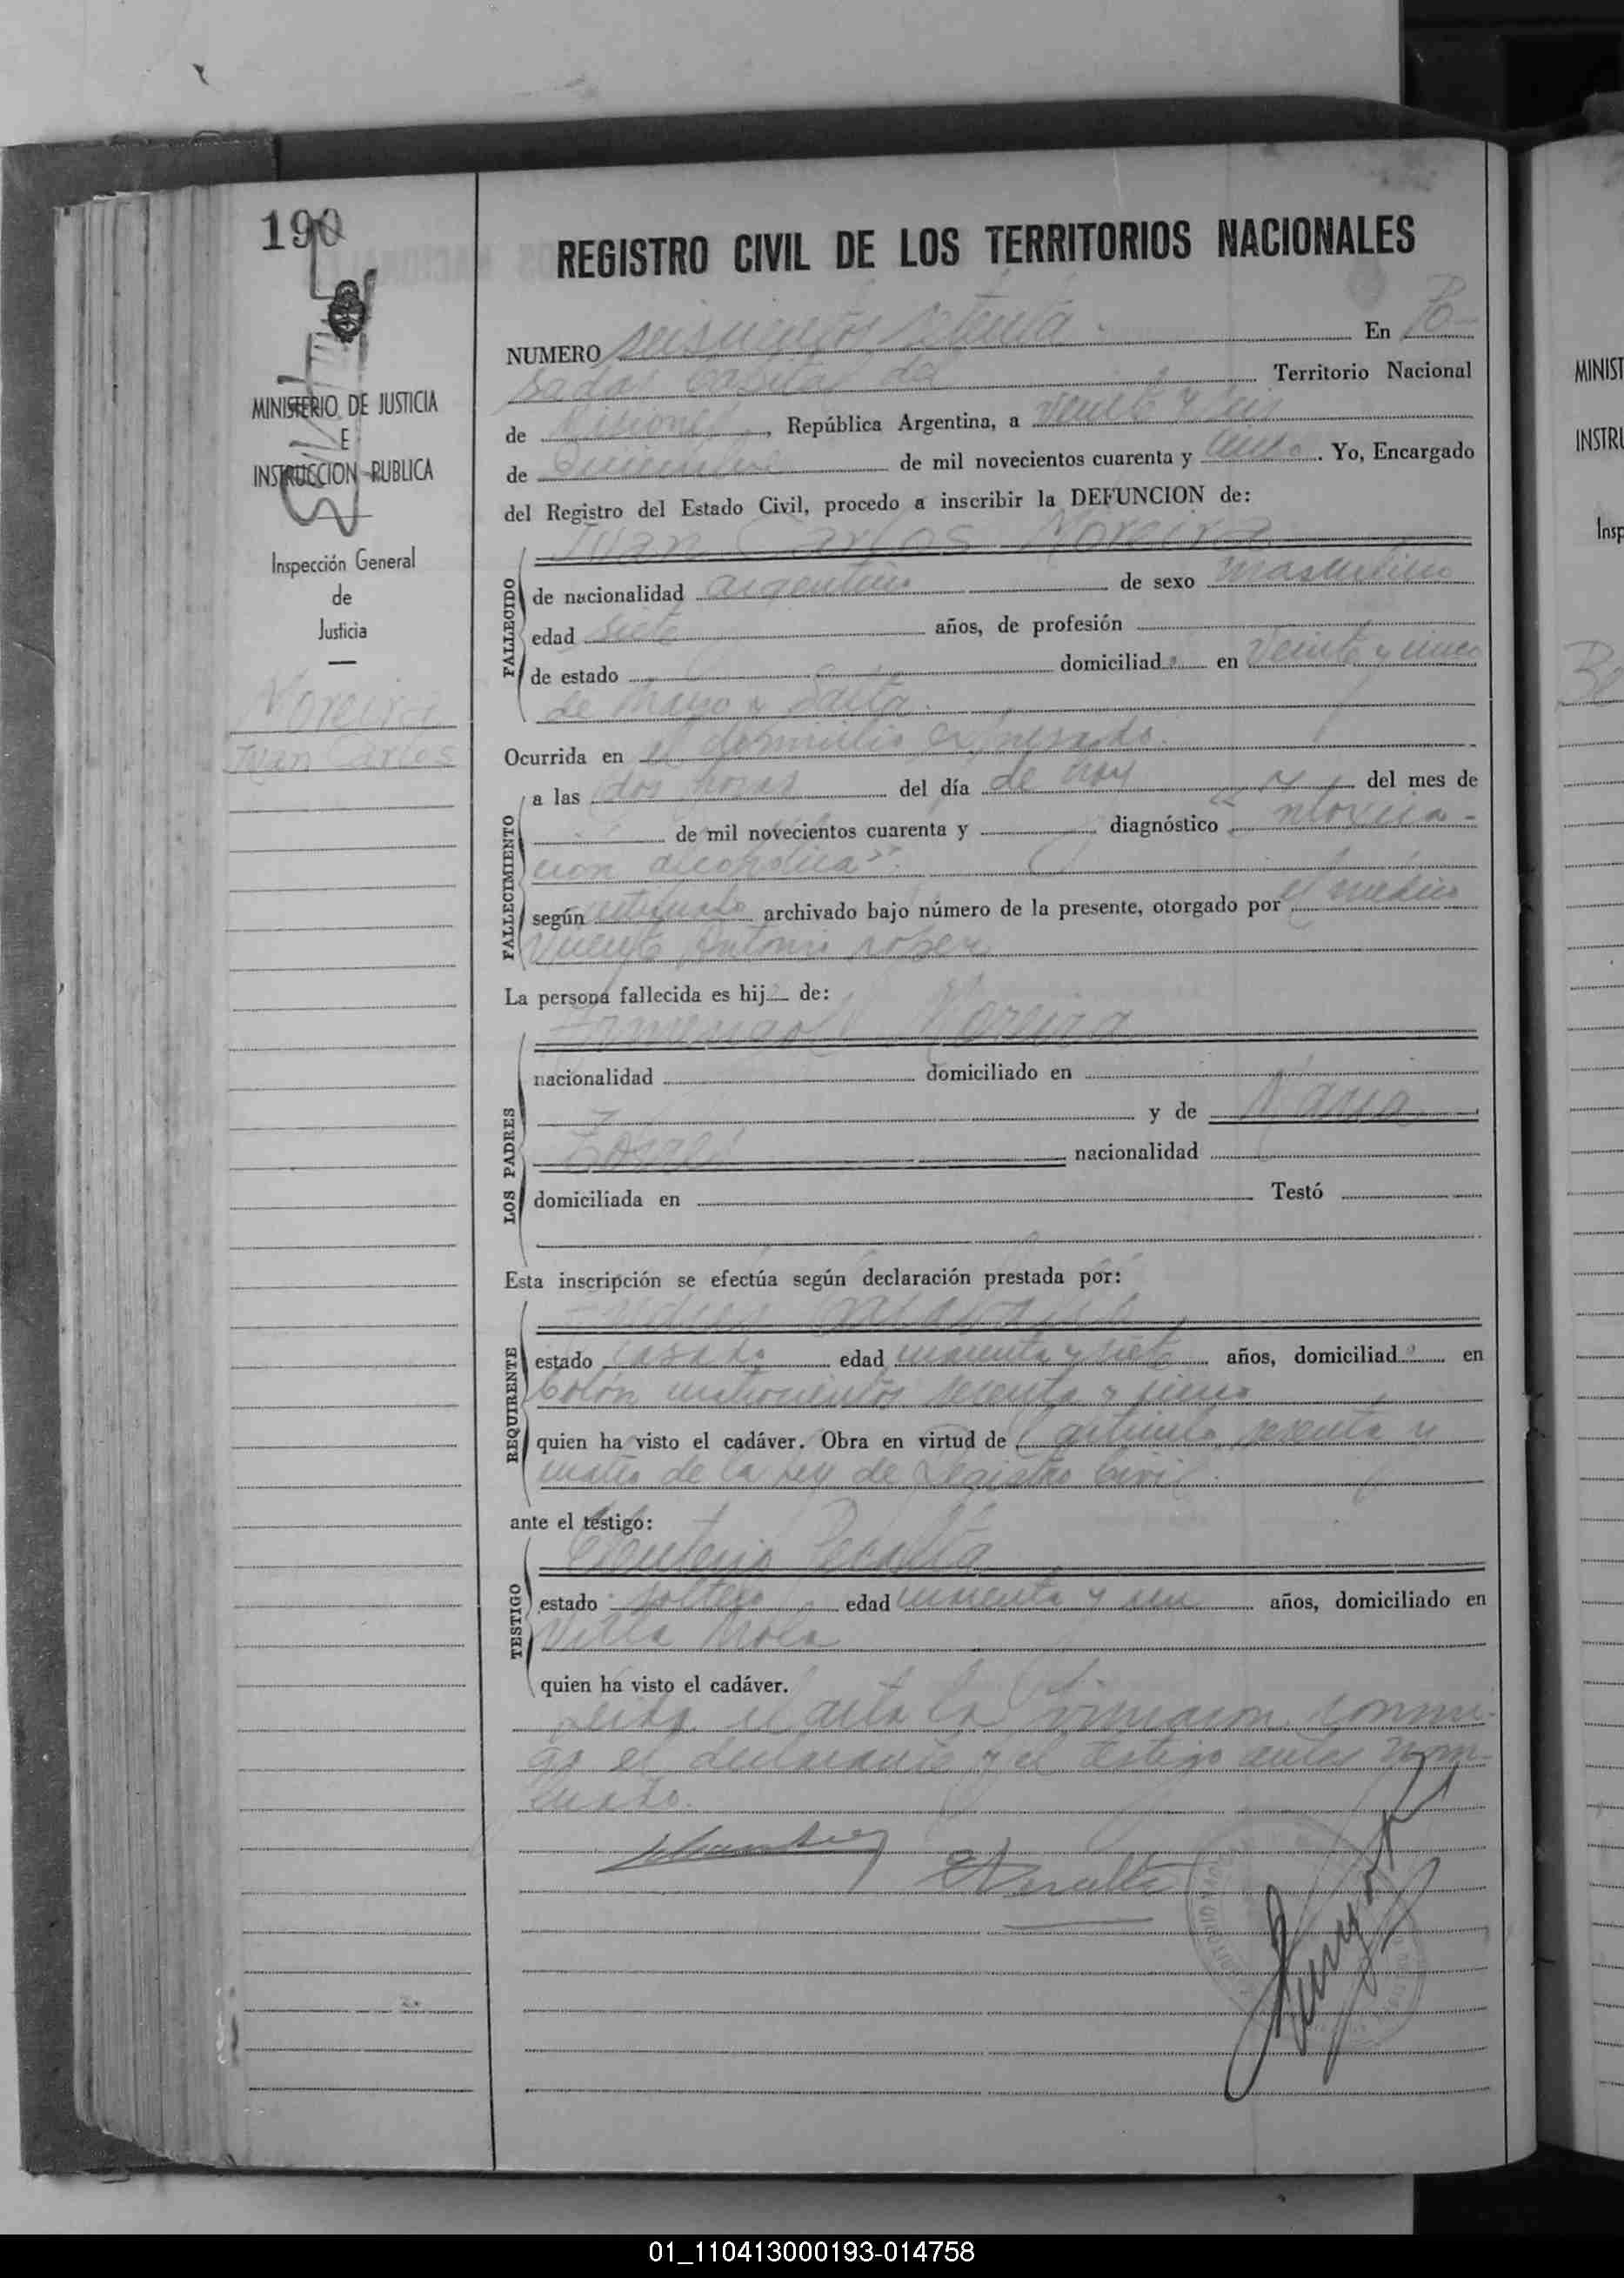 190
MINISTERIO DE JUSTICIA
E
INSTRUCCION PUBLICA
Inspección General
de
Justicia
Moreira
Juan Carlos
REGISTRO CIVIL DE LOS TERRITORIOS NACIONALES
NUMERO seiscientos setenta. En Po-
sadas capital del Territorio Nacional
de Misiones, República Argentina, a veinte y seis
de Diciembre de mil novecientos cuarenta y cinco. Yo, Encargado
del Registro del Estado Civil, procedo a inscribir la DEFUNCION de:
Juan Carlos Moreira
FALLECIDO
de nacionalidad argentino de sexo masculino
edad siete años, de profesión
de estado domiciliado en Veinte y cinco
de Mayo y Salta.
Ocurrida en el domicilio expresado.
FALLECIMIENTO
a las dos horas del día de hoy del mes de
de mil novecientos cuarenta y diagnóstico "Intoxica-
ción alcohólica".
según certificado archivado bajo número de la presente, otorgado por el médico
Vicente Antonio López
La persona fallecida es hijo de:
LOS PADRES
Moreira
nacionalidad domiciliado en
y de María
nacionalidad
domiciliada en Testó
Esta inscripción se efectúa según declaración prestada por:
REQUIRENTE
estado casado edad cuarenta y siete años, domiciliado en
Colón cuatrocientos sesenta y cinco
quien ha visto el cadáver. Obra en virtud de artículo sesenta y
cuatro de la Ley de Registro Civil.
ante el testigo:
TESTIGO
Eleuterio Peralta
estado soltero edad cuarenta y seis años, domiciliado en
Villa Mola
quien ha visto el cadáver.
Leída el acta la firmaron conmi-
go el declarante y el testigo antes nom-
brado.
EPeralta
MINIST
INSTRU
Insp
01_110413000193-014758